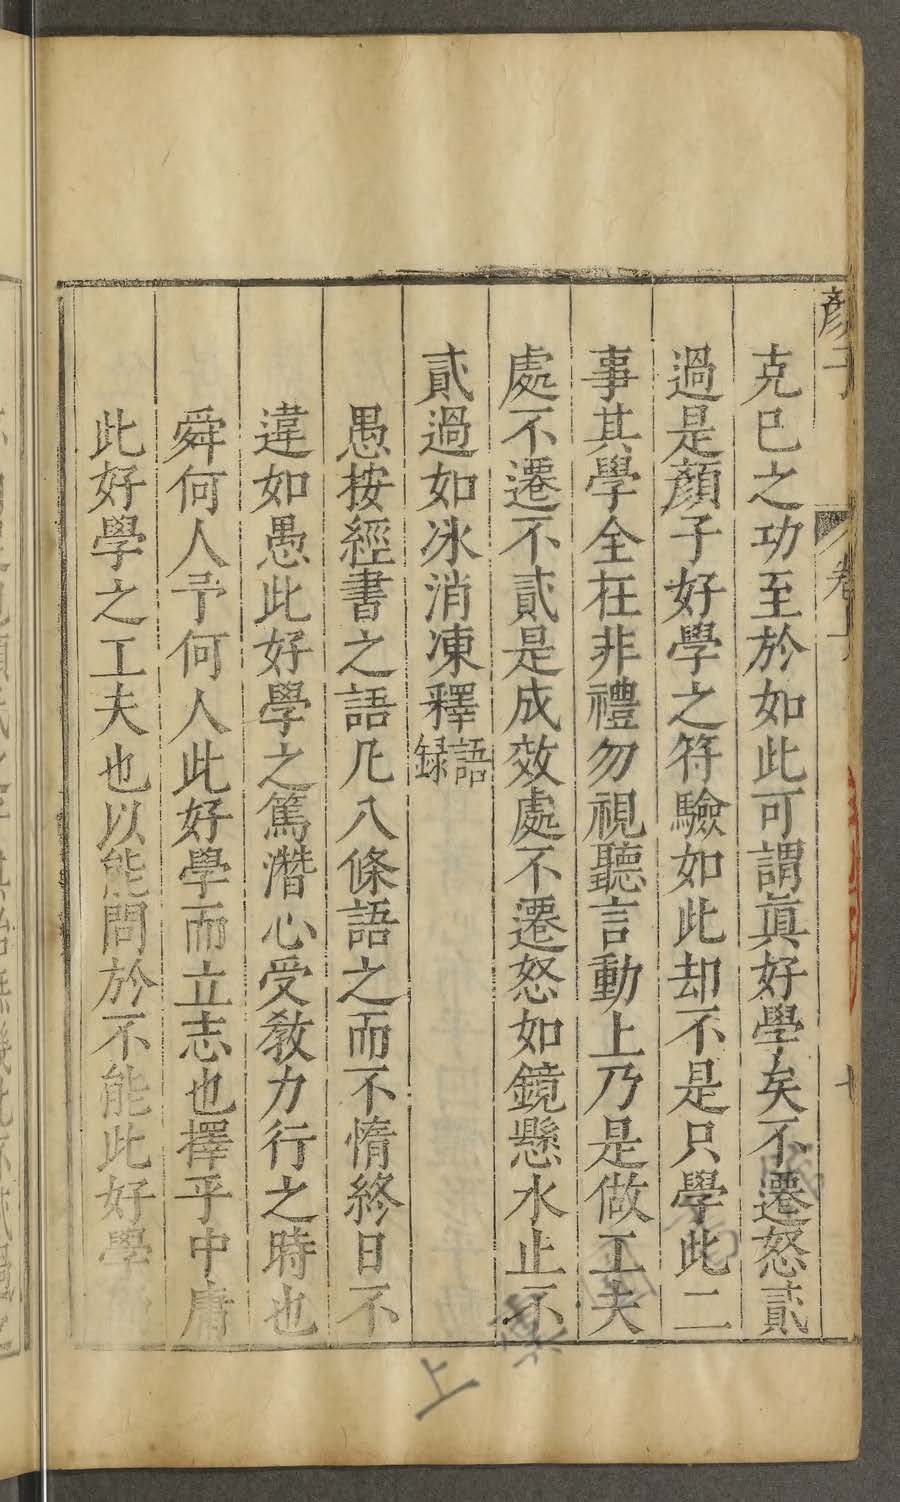 顏子
卷一
克已之功至於如此可謂眞好學矣不遷怒貳
過是顏子好學之符驗如此却不是只學此二
事其學全在非禮勿視聽言動上乃是做工夫
處不遷不貳是成效處不遷怒如鏡懸水止不
貳過如冰消凍釋語錄
愚按經書之語凡八條語之而不惰終日不
違如愚此好學之篤潛心受敎力行之時也
舜何人予何人此好學而立志也擇乎中庸
此好學之工夫也以能問於不能此好學